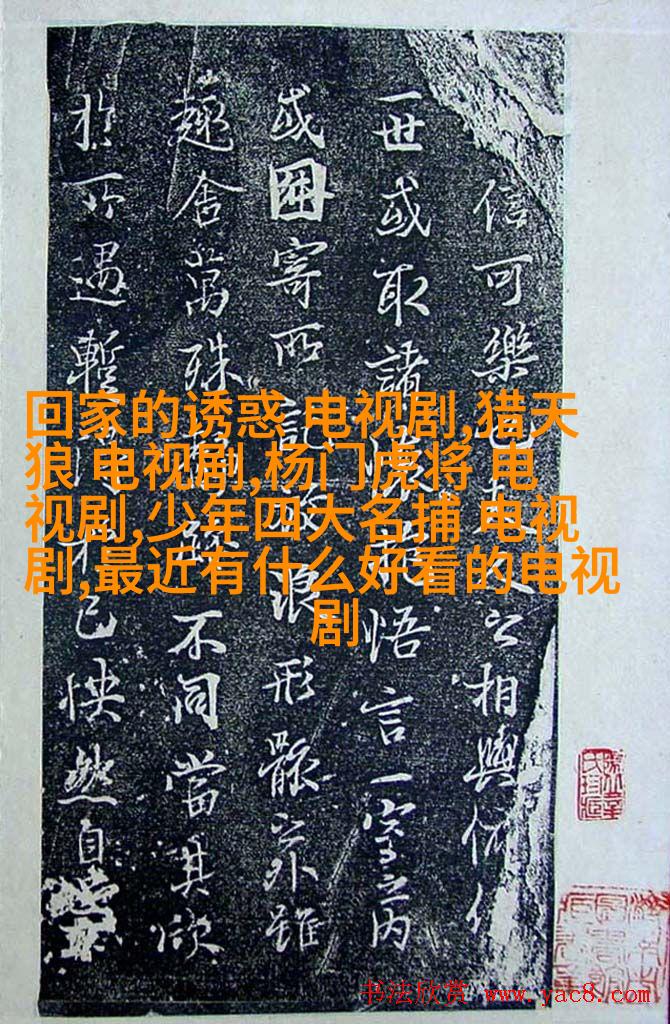 信可樂也夫人之相與俯仰
一世或取諸懷抱悟言一室之內
或因寄所託放浪形骸之外雖
趣舍萬殊靜躁不同當其欣
於所遇暫得於己快然自
回家的诱惑 电视剧,猎天
狼 电视剧,杨门虎将 电
视剧,少年四大名捕 电视
剧,最近有什么好看的电视
剧
书法欣赏 www.yac8.com